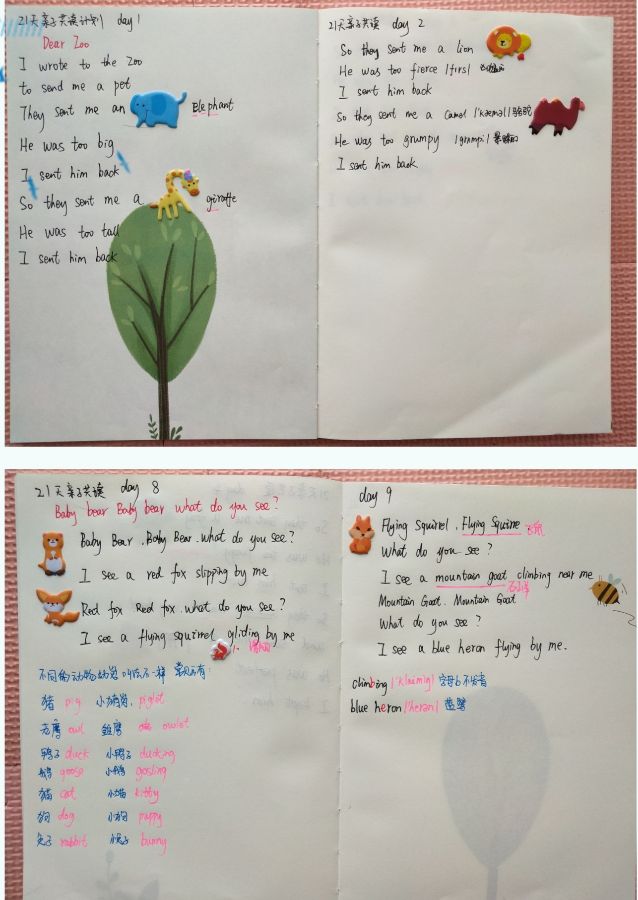 21天亲子共读计划 day 1
Dear Zoo
I wrote to the Zoo
to send me a pet
They sent me an Elephant
He was too big
I sent him back
So they sent me a giraffe
He was too tall
I sent him back
21天亲子共读 day 2
So they sent me a lion
He was too fierce |fɪrs|
I sent him back
So they sent me a Camel |'kæməl| 骆驼
He was too grumpy |grʌmpi|
I sent him back
21天亲子共读 day 8
Baby bear Baby bear what do you see?
Baby Bear, Baby Bear. what do you see?
I see a red fox slipping by me
Red fox Red fox. what do you see?
I see a flying squirrel gliding by me
不同的动物幼崽叫法不一样 常见的有:
猪 pig 小猪崽 piglet
owl owlet
鸭子 duck 小鸭子 ducking
鹅 goose 小鹅 gosling
猫 cat 小猫 kitty
狗 dog 小狗 puppy
兔子 rabbit 小兔子 bunny
day 9
Flying Squirrel, Flying Squirre
What do you see?
I see a mountain goat climbing near me
Mountain Goat. Mountain Goat
What do you see?
I see a blue heron flying by me.
climbing |'klaimiŋ| 字母b不发音
blue heron |'herən| 蓝鹭